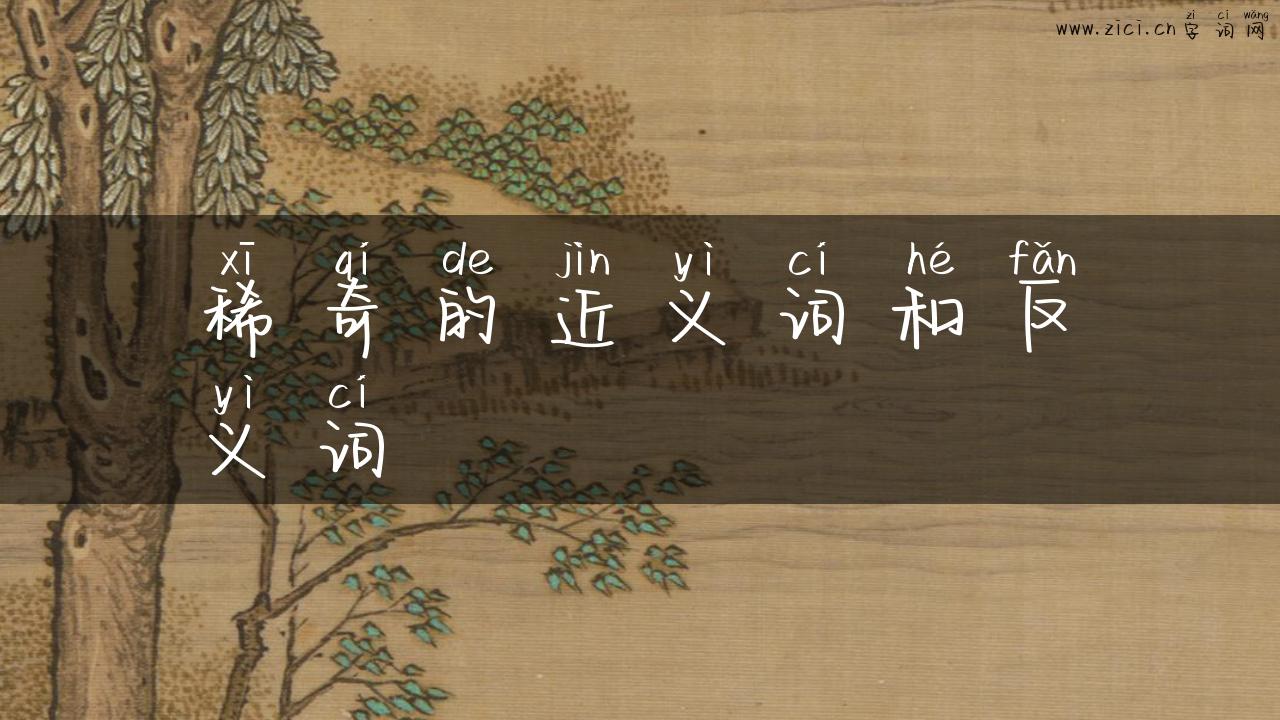 zì cí wǎng
www.zici.cn 字 词 网
xī qí de jìn yì cí hé fǎn
稀 奇 的 近 义 词 和 反
yì cí
义 词